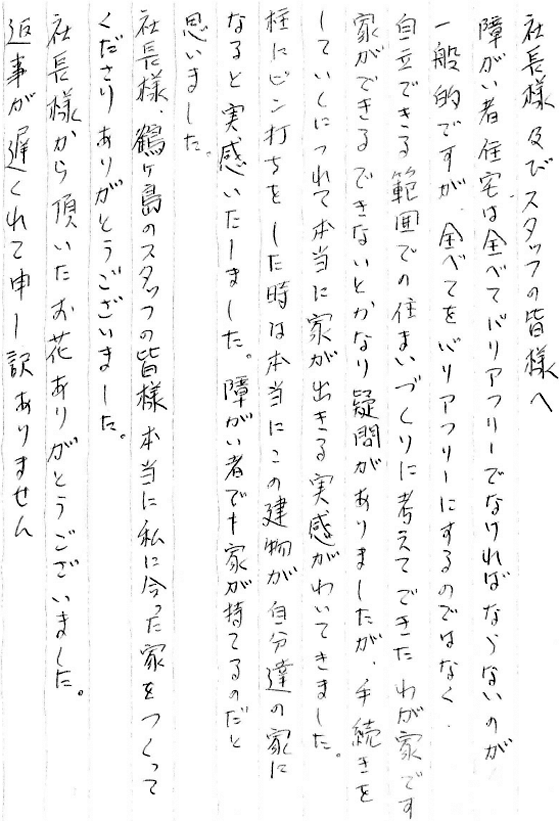 社長様及びスタッフの皆様へ
障がい者住宅は全べてバリアフリーでなければならないのが
一般的ですが、全べてをバリアフリーにするのではなく、
自立できる範囲での住まいづくりに考えてできたわが家です
家ができるできないとかなり疑問がありましたが、手続きを
していくにつれて本当に家が出きる実感がわいてきました。
柱にビン打ちをした時は本当にこの建物が自分達の家に
なると実感いたしました。障がい者でも家が持てるのだと
思いました。
社長様、鶴ヶ島のスタッフの皆様本当に私に合った家をつくって
くださりありがとうございました。
社長様から頂いたお花ありがとうございました。
返事が遅くれて申し訳ありません